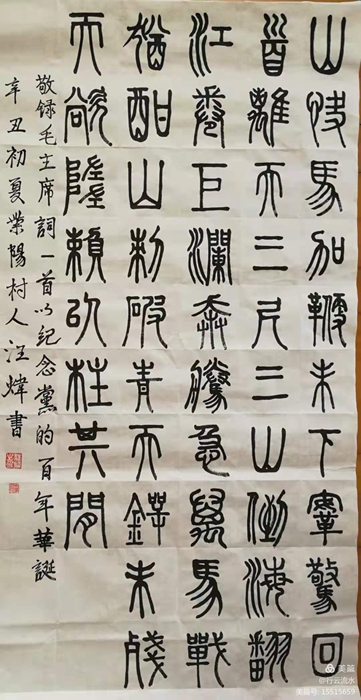 山快馬加鞭未下鞌驚回
首離天三尺三山倒海翻
江卷巨瀾奔騰急萬馬戰
猶酣山刺破青天鍔未殘
天欲墮賴以柱其間
敬録毛主席詞一首以紀念黨的百年華誕
辛丑初夏榮陽村人汪煒書
美篇
@行云流水
美篇号: 15515659